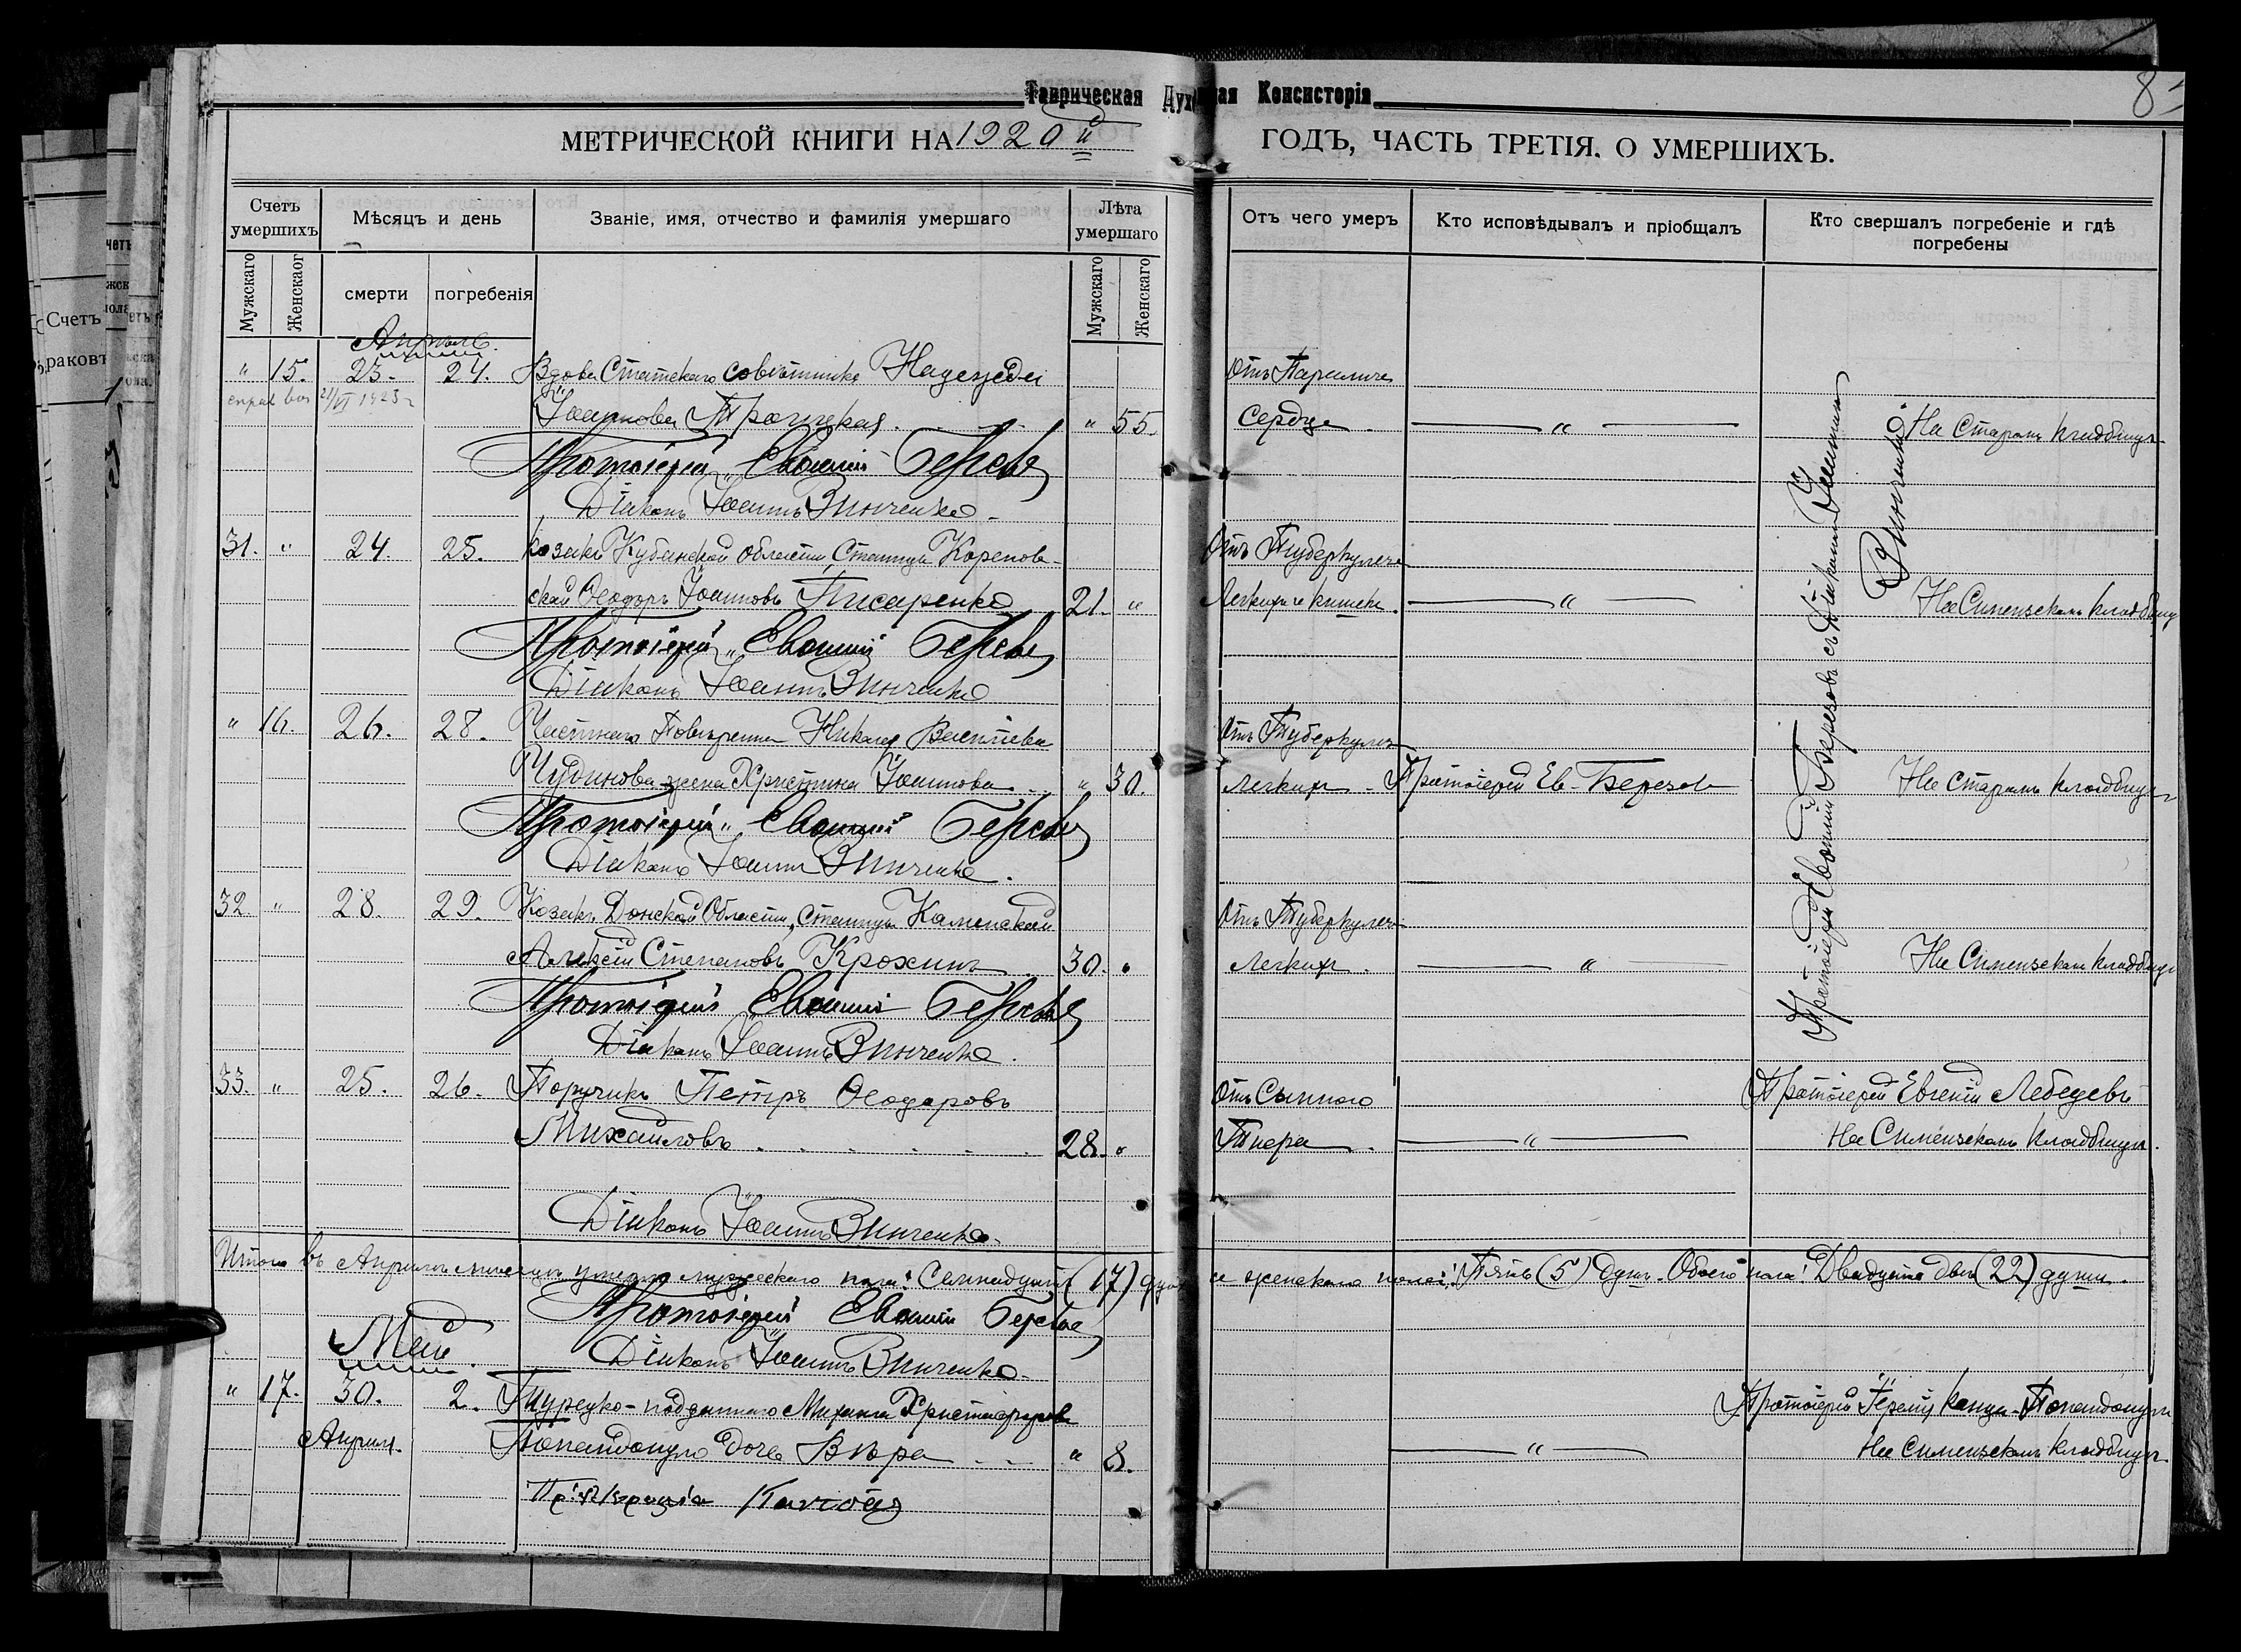 Таврическая Духовная Консисторія
8
МЕТРИЧЕСКОЙ КНИГИ НА 1920 й ГОДЪ, ЧАСТЬ ТРЕТІЯ. О УМЕРШИХЪ.
Счетъ умершихъ
Мѣсяцъ и день
Званіе, имя, отчество и фамилія умершаго
Лѣта умершаго
Отъ чего умеръ
Кто исповѣдывалъ и пріобщалъ
Кто свершалъ погребеніе и гдѣ погребены
Мужскаго
Женскаог
смерти
погребенія
Мужскаго
Женскаго
Апрѣль.
" 15. 23. 24. Вдова Статскаго совѣтника Надежда Отъ Паралича
21/VI 1923 г Іоаннова Троицкая. " 55. Сердца. — " — На Старомъ кладбищѣ
Протоіерей Евѳимій Березовъ
Діаконъ Іоаннъ Винченко.
31. " 24 25. Козакъ Кубанской области, Станицы Коренов- Отъ Туберкулеза
ской Ѳеодоръ Іоанновъ Писаренко 21. " Легкихъ и кишекъ. — " — На Симеизскомъ кладбищѣ
Протоіерей Евѳимій Березовъ
Діаконъ Іоаннъ Винченко
" 16. 26. 28. Частнаго Повѣреннаго Николая Васильева Отъ Туберкулеза
Чудинова жена Христина Іоаннова " 30. Легкихъ. Протоіерей Ев. Березовъ На Старомъ кладбищѣ
Протоіерей Евѳимій Березовъ
Діаконъ Іоаннъ Винченко.
32 " 28. 29. Козакъ Донской Области, станицы Каменской Отъ Туберкулеза
Алексѣй Степановъ Крохинъ 30. " Легкихъ. — " — На Симеизскомъ кладбищѣ
Протоіерей Евѳимій Березовъ
Діаконъ Іоаннъ Винченко.
Протоіерей Евѳимій Березовъ съ Діакономъ Іоанномъ
Винченко
33. " 25. 26. Поручикъ Петръ Ѳеодоровъ Отъ Сыпного Протоіерей Евгеній Лебедевъ
Михайловъ 28. " Тифа. — " — На Симеизскомъ кладбищѣ.
Діаконъ Іоаннъ Винченко.
Итого въ Апрѣлѣ мѣсяцѣ умерло мужескаго пола: Семнадцать (17) душъ и женскаго пола: Пять (5) душъ. Обоего пола: Двадцать двѣ (22) души.
Протоіерей Евѳимій Березовъ
Май. Діаконъ Іоаннъ Винченко.
" 17. 30. 2. Турецко-подданнаго Михаила Христофорова Протоіерей
Апрѣл. Попандопуло дочь Вѣра " 8. — " — На Симеизскомъ кладбищѣ